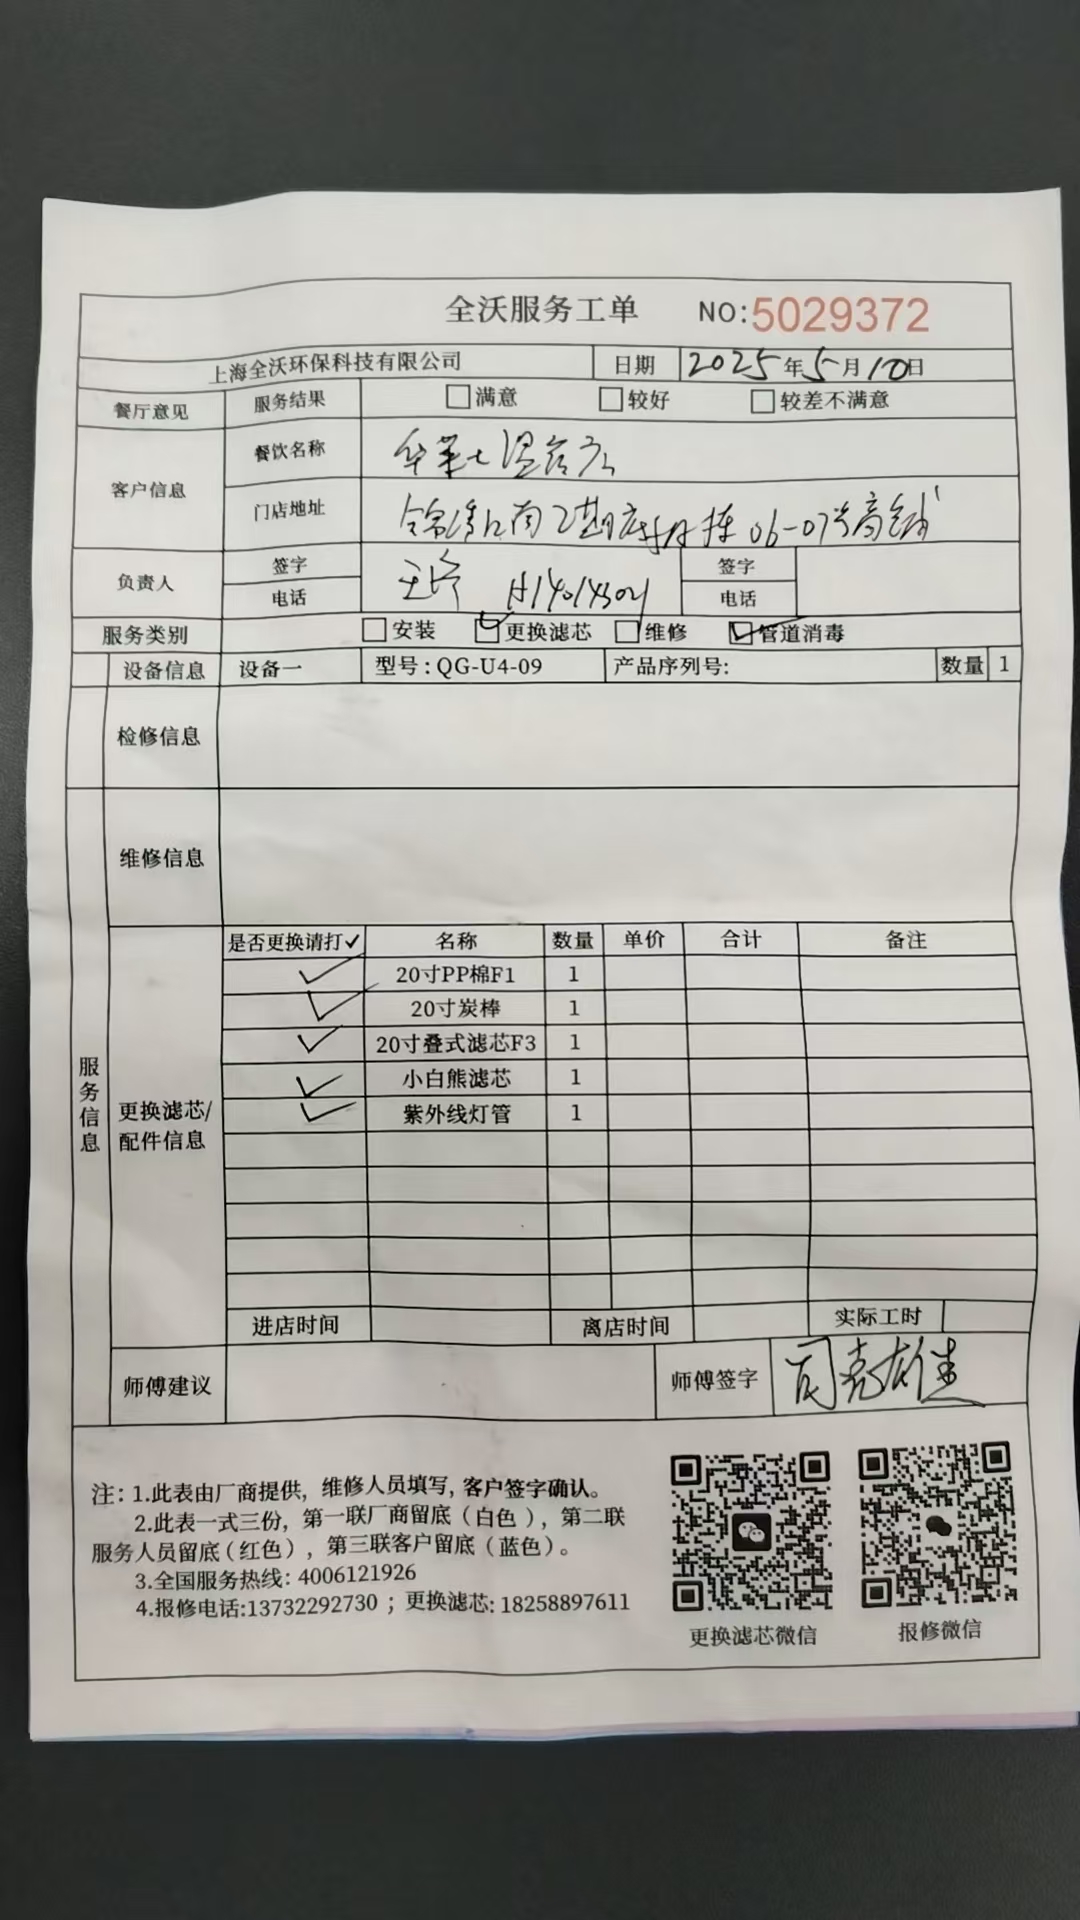 全沃服务工单 NO:5029372
上海全沃环保科技有限公司 日期 2025年5月10日
餐厅意见 服务结果 满意 较好 较差不满意
客户信息 餐饮名称 华莱士
门店地址 06-07号商铺
负责人 签字 签字
电话 电话
服务类别 安装 更换滤芯 维修 管道消毒
设备信息 设备一 型号:QG-U4-09 产品序列号: 数量 1
检修信息
维修信息
服务信息
更换滤芯/配件信息
是否更换请打✓ 名称 数量 单价 合计 备注
✓ 20寸PP棉F1 1
✓ 20寸炭棒 1
✓ 20寸叠式滤芯F3 1
✓ 小白熊滤芯 1
✓ 紫外线灯管 1
进店时间 离店时间 实际工时
师傅建议 师傅签字
注:1.此表由厂商提供,维修人员填写,客户签字确认。
2.此表一式三份,第一联厂商留底(白色),第二联
服务人员留底(红色),第三联客户留底(蓝色)。
3.全国服务热线:4006121926
4.报修电话:13732292730;更换滤芯:18258897611
更换滤芯微信 报修微信